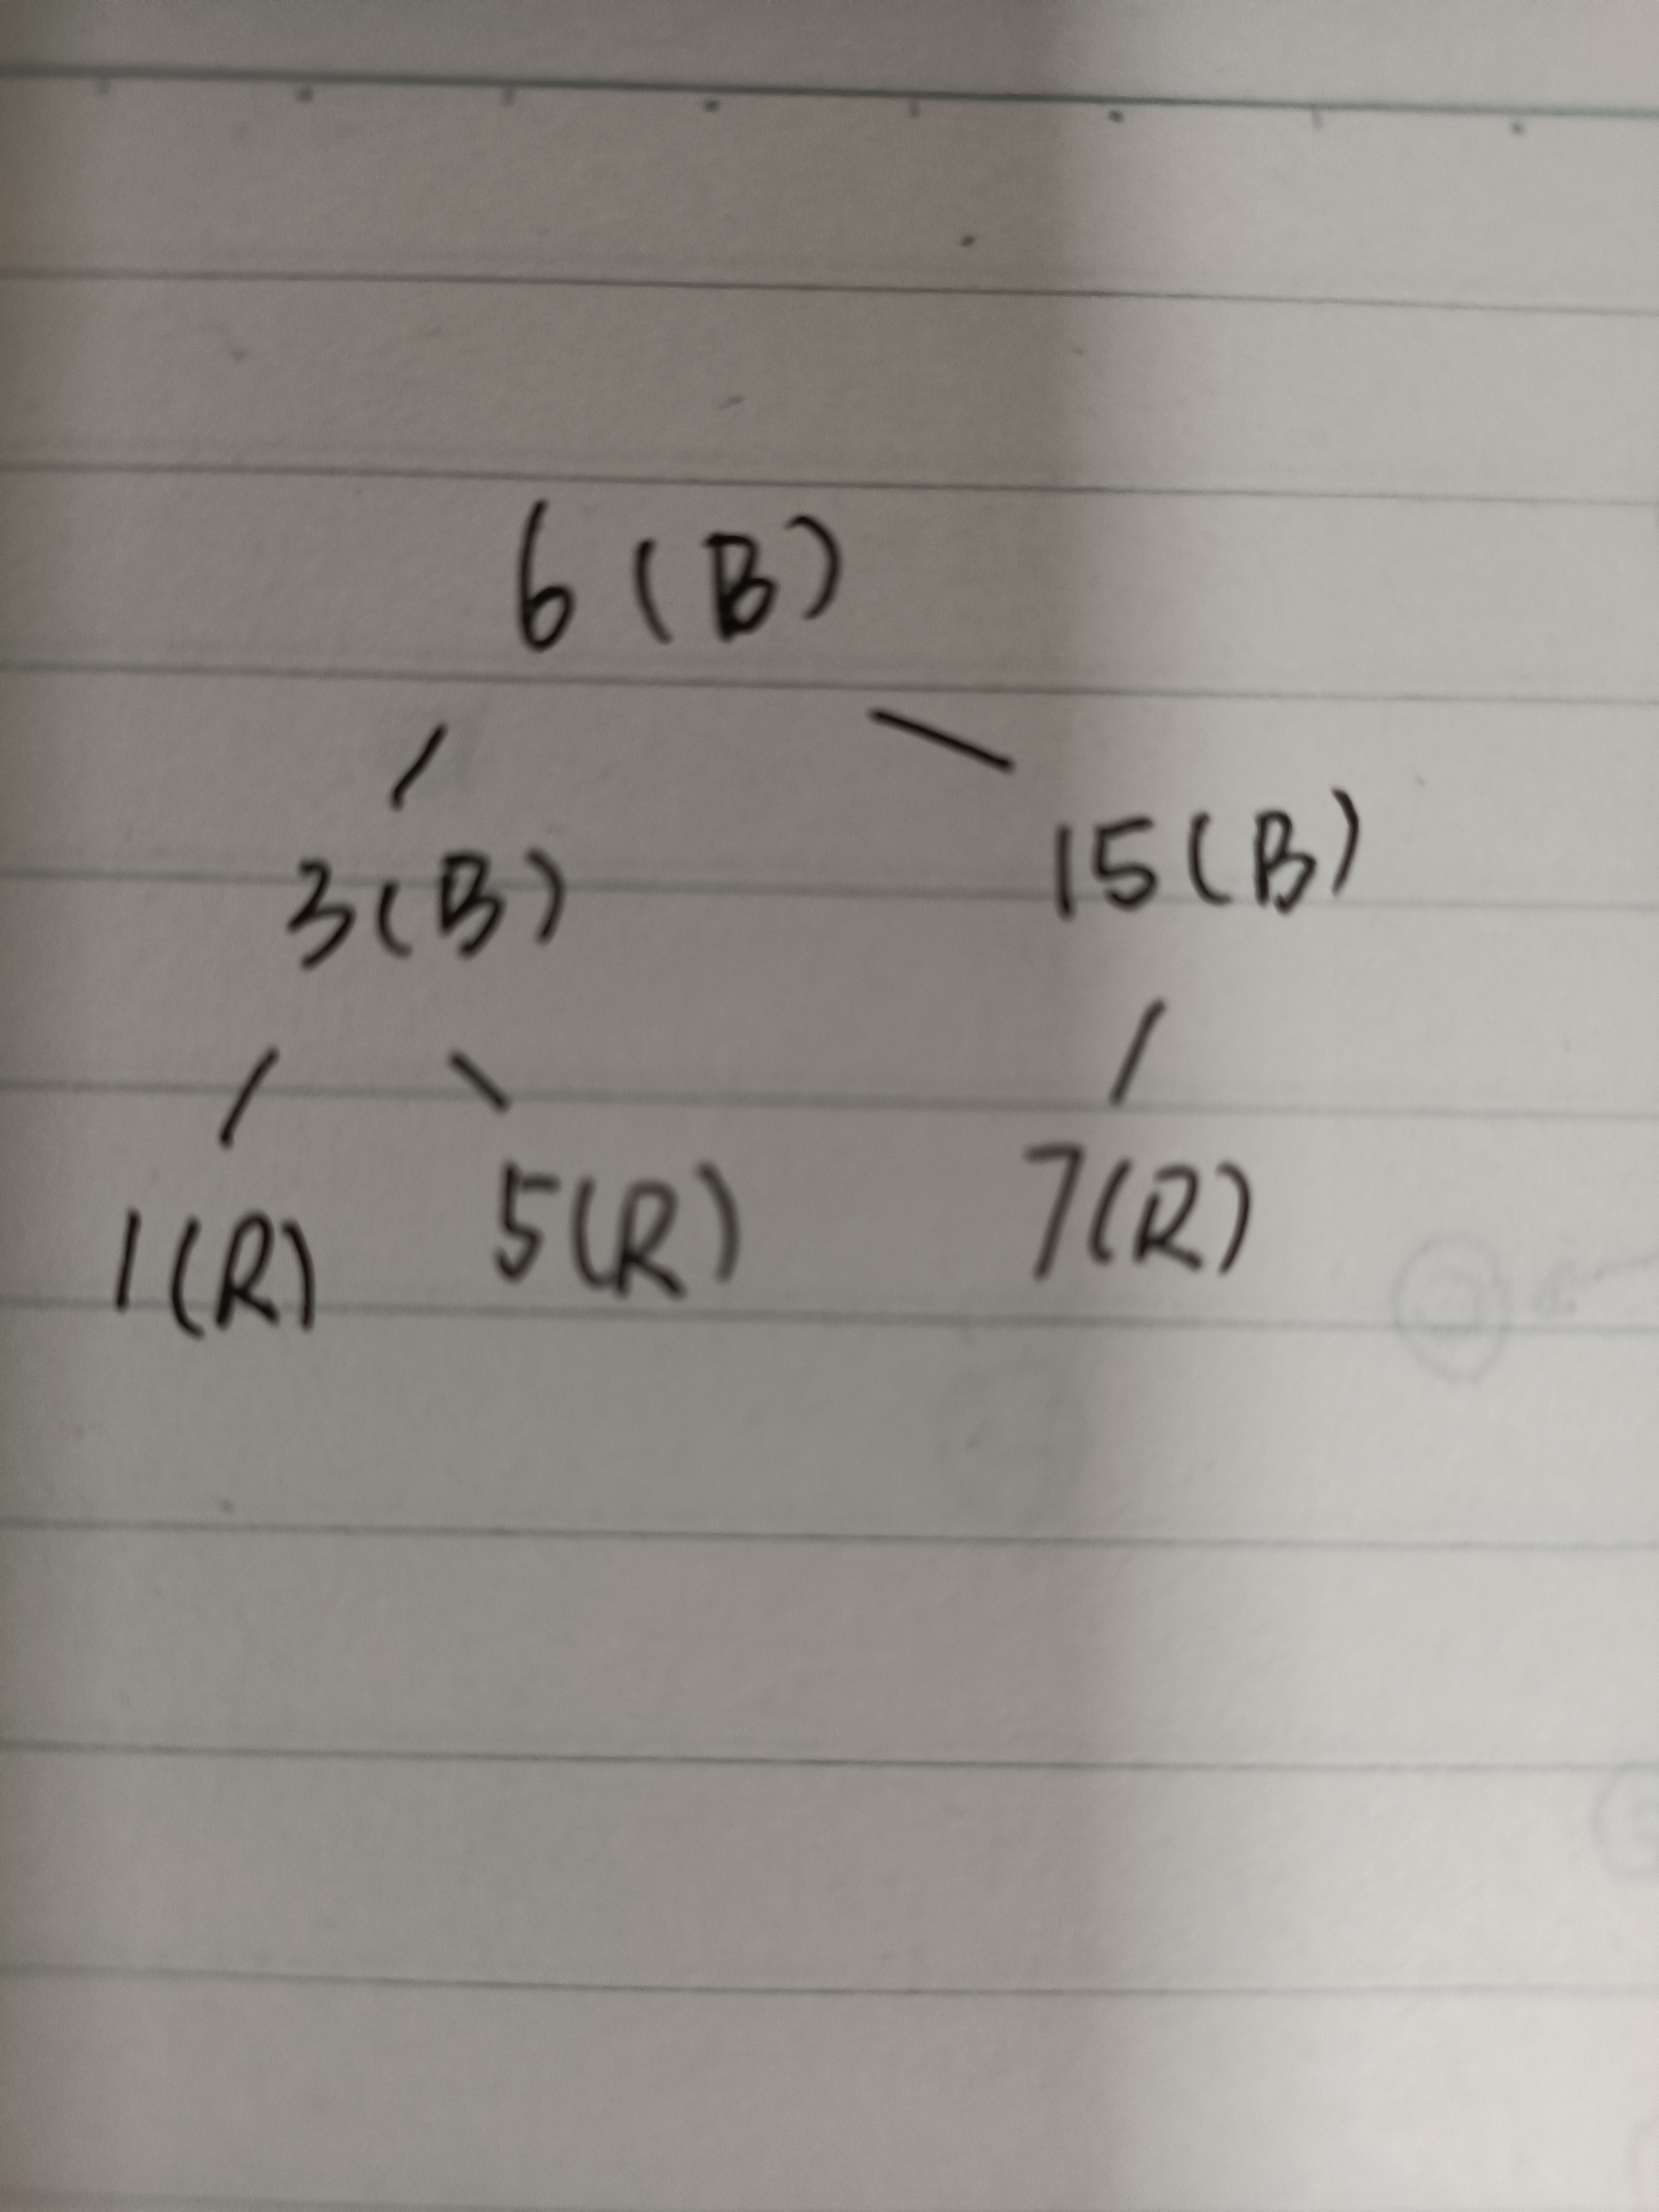 6 (B)
3(B) 15(B)
1(R) 5(R) 7(R)